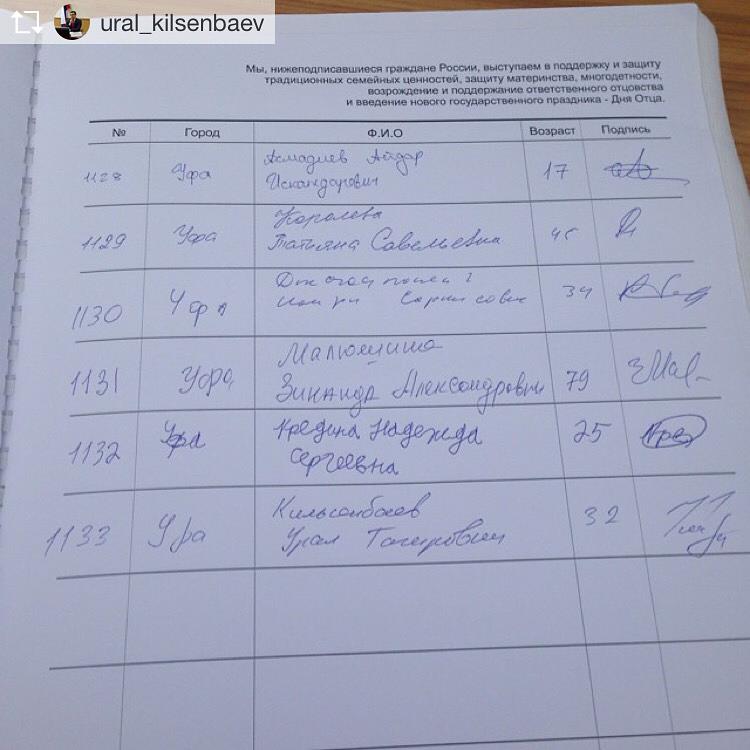 ural_kilsenbaev
Мы, нижеподписавшиеся граждане России, выступаем в поддержку и защиту
традиционных семейных ценностей, защиту материнства, многодетности,
возрождение и поддержание ответственного отцовства
и введение нового государственного праздника - Дня Отца.
№ Город Ф.И.О Возраст Подпись
1128 Уфа Айдар 17
Искандарович
1129 Уфа Королева
Татьяна Савельевна
1130 Уфа 34
1131 Уфа
Александровна 79
1132 Уфа Кредина Надежда 25
Сергеевна
1133 Уфа Кильсенбаев 32
Урал Тагирович